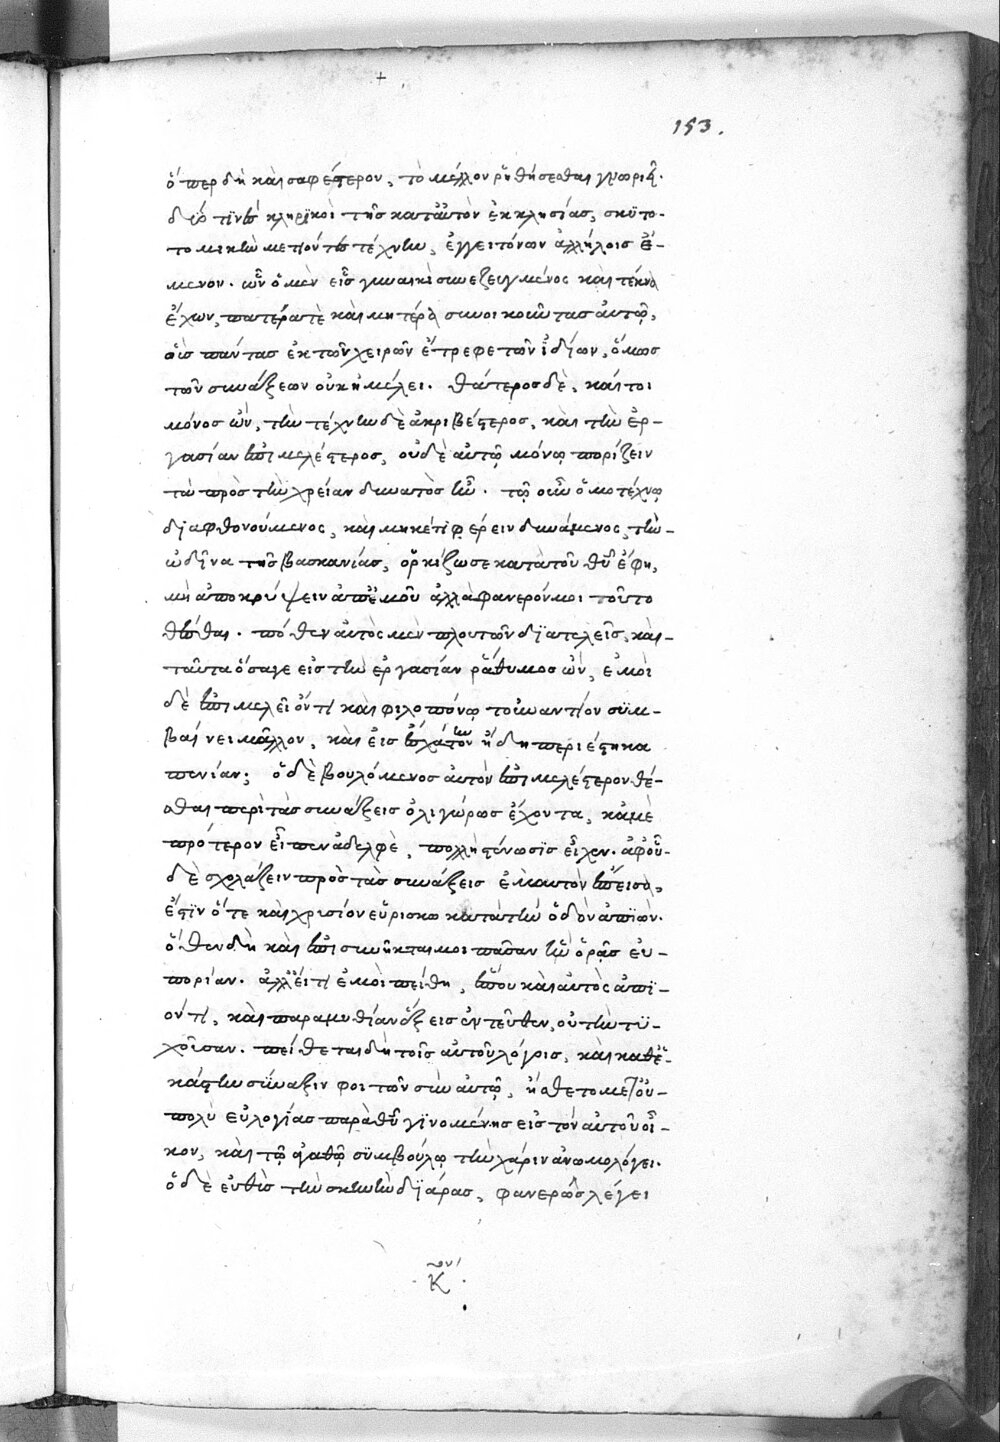 +
153.
ὅπερ δὴ καὶ σαφέστερον, τὸ μέλλον ῥηθήσεσθαι γνωριεῖ.
δύο τινὲς κληρικοὶ τῆς κατ' αὐτὸν ἐκκλησίας, σκυτο-
τομικὴν μετιόντες τέχνην, ἐγγειτόνων ἀλλήλοις
μενον. ὧν ὁ μὲν εἷς γυναικὶ συνεζευγμένος καὶ τέκνα
ἔχων, πατέρα τὲ καὶ μητέρα συνοικοῦντας αὐτῷ,
οὓς πάντας ἐκ τῶν χειρῶν ἔτρεφε τῶν ἰδίων, ὅμως
τῶν συνάξεων οὐκ ἠμέλει. θάτερος δὲ, καίτοι
μόνος ὢν, τὴν τέχνην δὲ ἀκριβέστερος, καὶ τὴν ἐρ-
γασίαν ἐπιμελέστερος, οὐδὲ αὐτῷ μόνῳ πορίζειν
τὰ πρὸς τὴν χρείαν δυνατὸς ἦν. τῷ οὖν ὁμοτέχνῳ
διαφθονούμενος, καὶ μηκέτι φέρειν δυνάμενος, τὴν
ὠδῖνα τῆς βασκανίας, ὁρκίζω σε κατὰ τοῦ θυ ἔφη,
μὴ ἀποκρύψειν ἀπ' ἐμοῦ ἀλλὰ φανερόν μοι τοῦτο
θέσθαι. πόθεν αὐτὸς μὲν πλουτῶν διατελεῖς, καὶ
ταῦτα ὅσα γε εἰς τὴν ἐργασίαν ῥᾴθυμος ὢν, ἐμοὶ
δὲ ἐπιμελεῖ ὄντι καὶ φιλοπόνῳ τοὐναντίον συμ-
βαίνει μᾶλλον, καὶ εἰς ἐσχάτην ἤδη περιέστηκα
πενίαν; ὁ δὲ βουλόμενος αὐτὸν ἐπιμελέστερον θέ-
σθαι περὶ τὰς συνάξεις ὀλιγώρως ἔχοντα, κἀμὲ
πρότερον εἶπεν ἀδελφὲ, πολλὴ στένωσις εἶχεν. ἀφ' οὗ
δὲ σχολάζειν πρὸς τὰς συνάξεις ἐμαυτὸν ἔπεισα,
ἔστιν ὅτε καὶ χρυσίον εὑρίσκω κατὰ τὴν ὁδὸν ἀπιών.
ὅθεν δὴ καὶ ἐπισυνῆκταί μοι πᾶσαν ἣν ὁρᾷς εὐ-
πορίαν. ἀλλ' εἴ τι ἐμοὶ πείθῃ, ἕπου καὶ αὐτὸς ἀπι-
όντι, καὶ παραμυθίαν ἕξεις ἐντεῦθεν, οὐ τὴν τυ-
χοῦσαν. πείθεται δὴ τοῖς αὐτοῦ λόγοις, καὶ καθ' ἑ-
κάστην σύναξιν φοιτῶν σὺν αὐτῷ, ᾔσθετο μετ' οὐ
πολὺ εὐλογίας παρὰ θυ γινομένης εἰς τὸν αὐτοῦ οἶ-
κον, καὶ τῷ ἀγαθῷ συμβούλῳ τὴν χάριν ἀνωμολόγει.
ὁ δὲ εὐθὺς τὴν σκηνὴν διάρας, φανερῶς λέγει